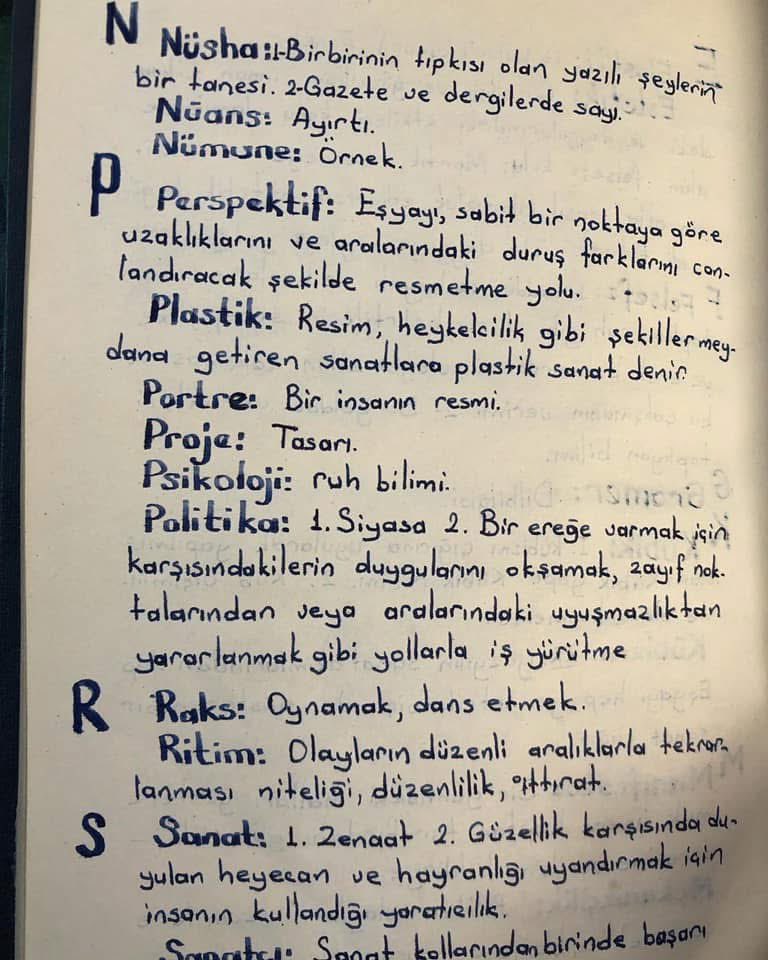 N
Nüsha: 1-Birbirinin tıpkısı olan yazılı şeylerin
bir tanesi. 2-Gazete ve dergilerde sayı.
Nüans: Ayırtı.
Nümune: Örnek.
P
Perspektif: Eşyayı, sabit bir noktaya göre
uzaklıklarını ve aralarındaki duruş farklarını can-
landıracak şekilde resmetme yolu.
Plastik: Resim, heykelcilik gibi şekiller mey-
dana getiren sanatlara plastik sanat denir.
Portre: Bir insanın resmi.
Proje: Tasarı.
Psikoloji: ruh bilimi.
Politika: 1. Siyasa 2. Bir ereğe varmak için
karşısındakilerin duygularını okşamak, zayıf nok-
talarından veya aralarındaki uyuşmazlıktan
yararlanmak gibi yollarla iş yürütme
R
Raks: Oynamak, dans etmek.
Ritim: Olayların düzenli aralıklarla tekrar-
lanması niteliği, düzenlilik, ıttırat.
S
Sanat: 1. Zenaat 2. Güzellik karşısında du-
yulan heyecan ve hayranlığı uyandırmak için
insanın kullandığı yaratıcılık.
Sanatçı: Sanat kollarından birinde başarı